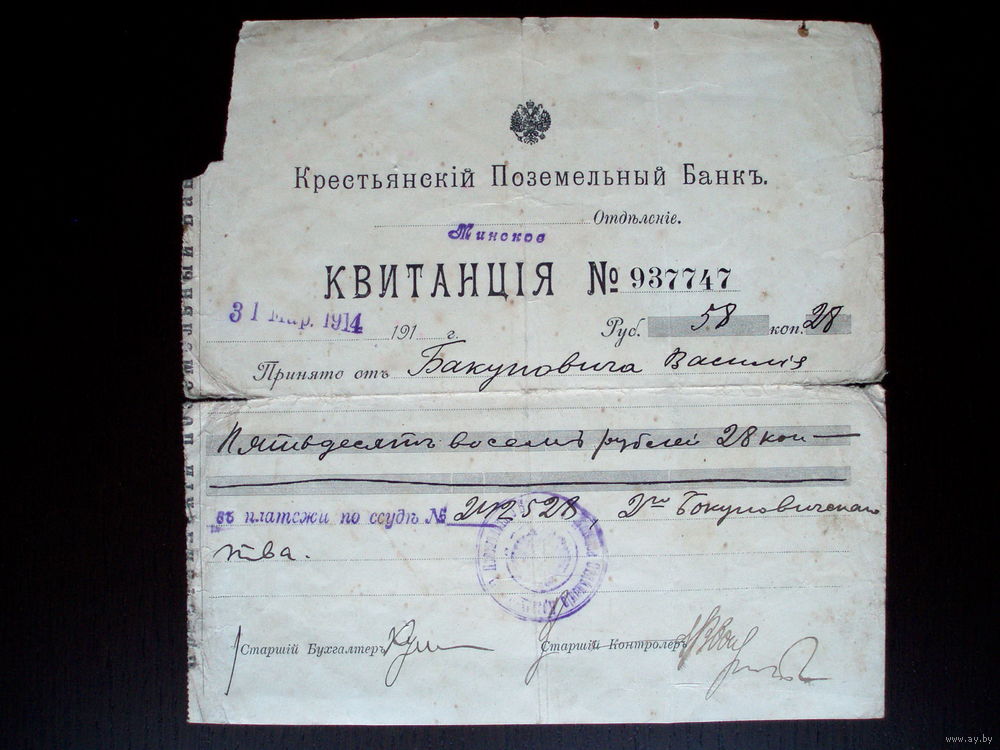 Крестьянскій Поземельный Банкъ.
Минское Отдѣленіе.
КВИТАНЦІЯ № 937747
31 Мар. 1914 191 г. Руб. 58 коп. 28
Принято отъ Бакуновича Василія
Пятьдесятъ восемь рублей 28 коп
въ платежи по ссудѣ №
тва.
Старшій Бухгалтеръ
Старшій Контролеръ
www.ay.by